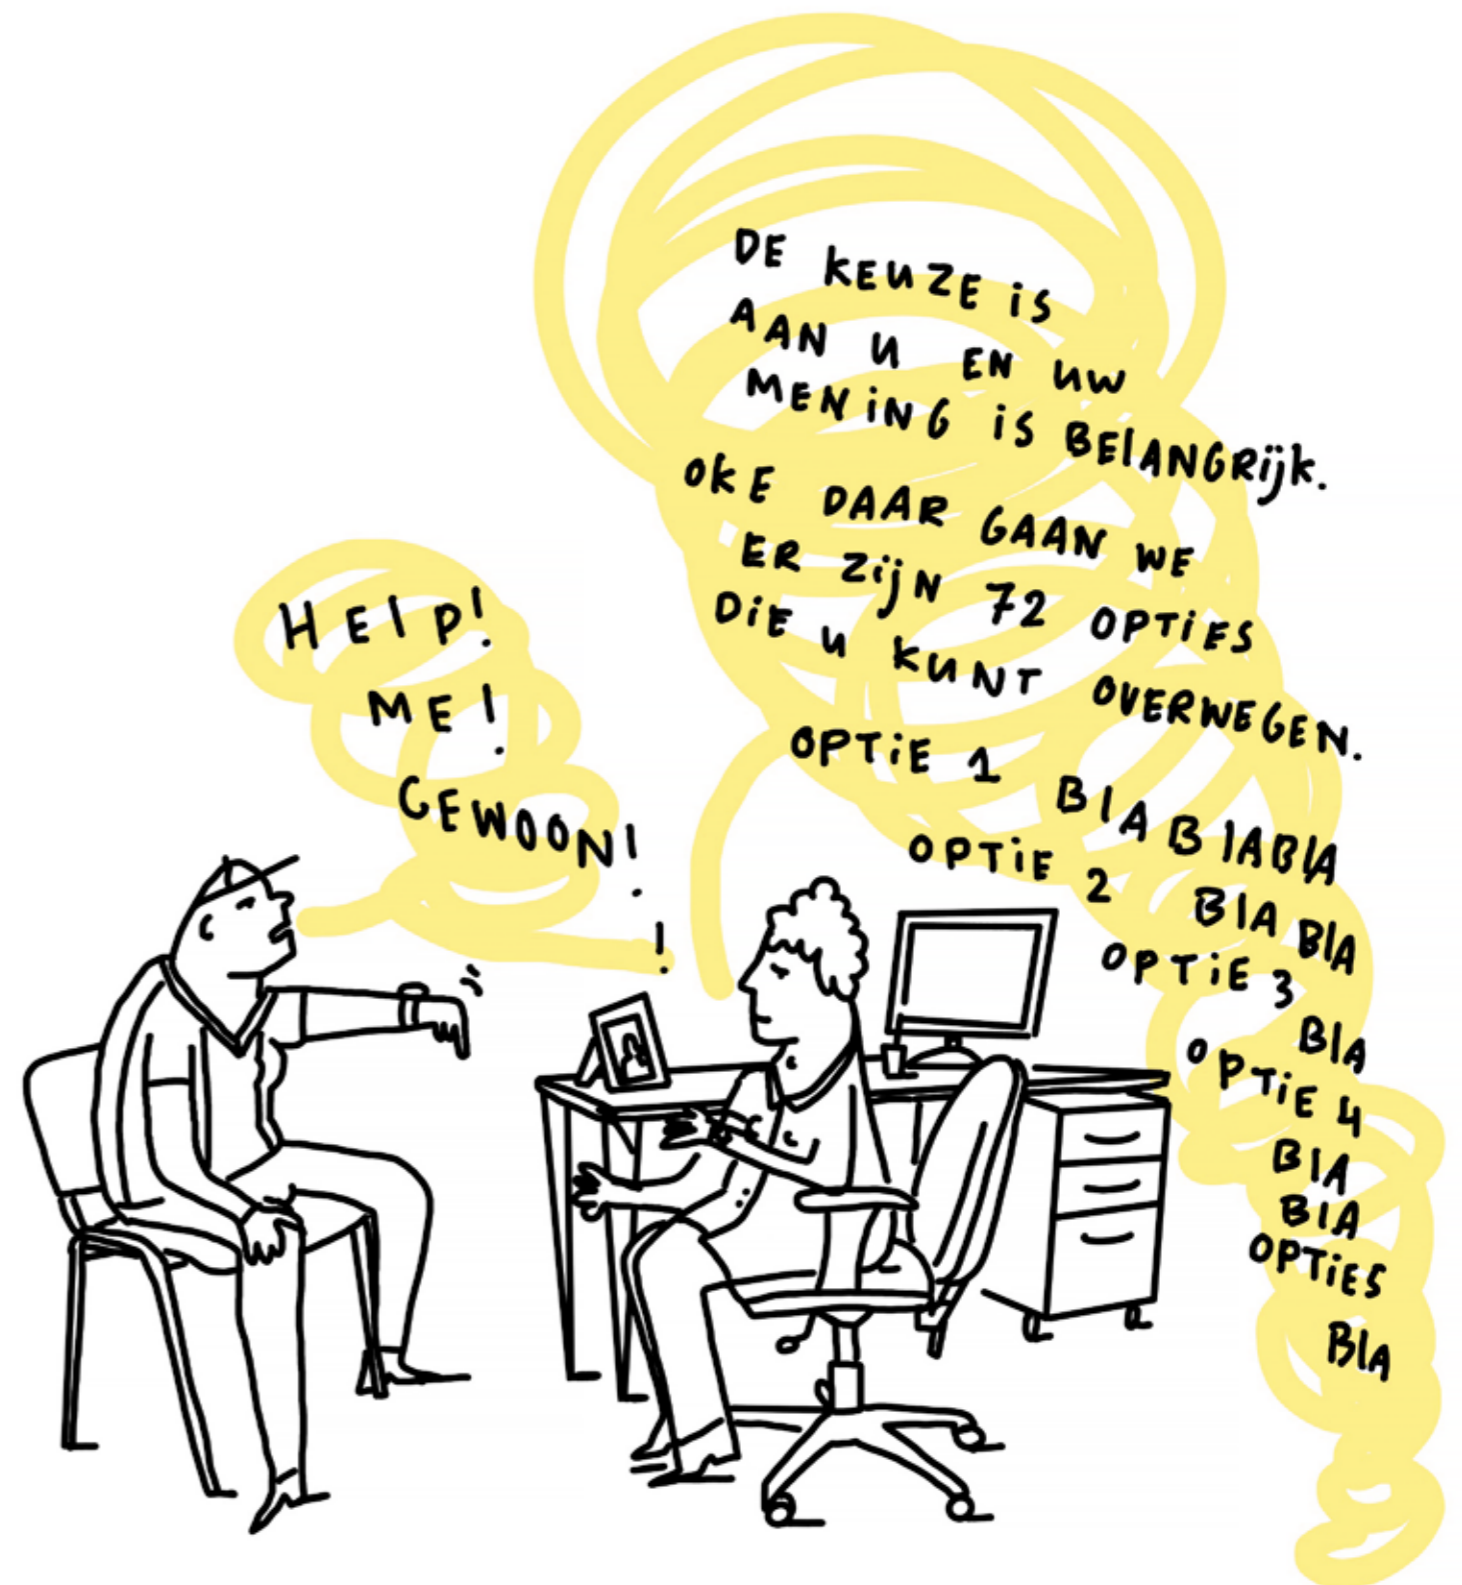 HElp!
ME!
GEWOON!
!
DE KEUZE iS
AAN U EN UW
MENiNG iS BElANGRijk.
OKE DAAR GAAN WE
ER ZijN 72 OPTiES
DiE U KUNT OVERWEGEN.
OPTiE 1 BlA BlABlA
OPTiE 2 BlA BlA
OPTiE 3 BlA
OPTiE 4
BlA
BlA
OPTiES
BlA